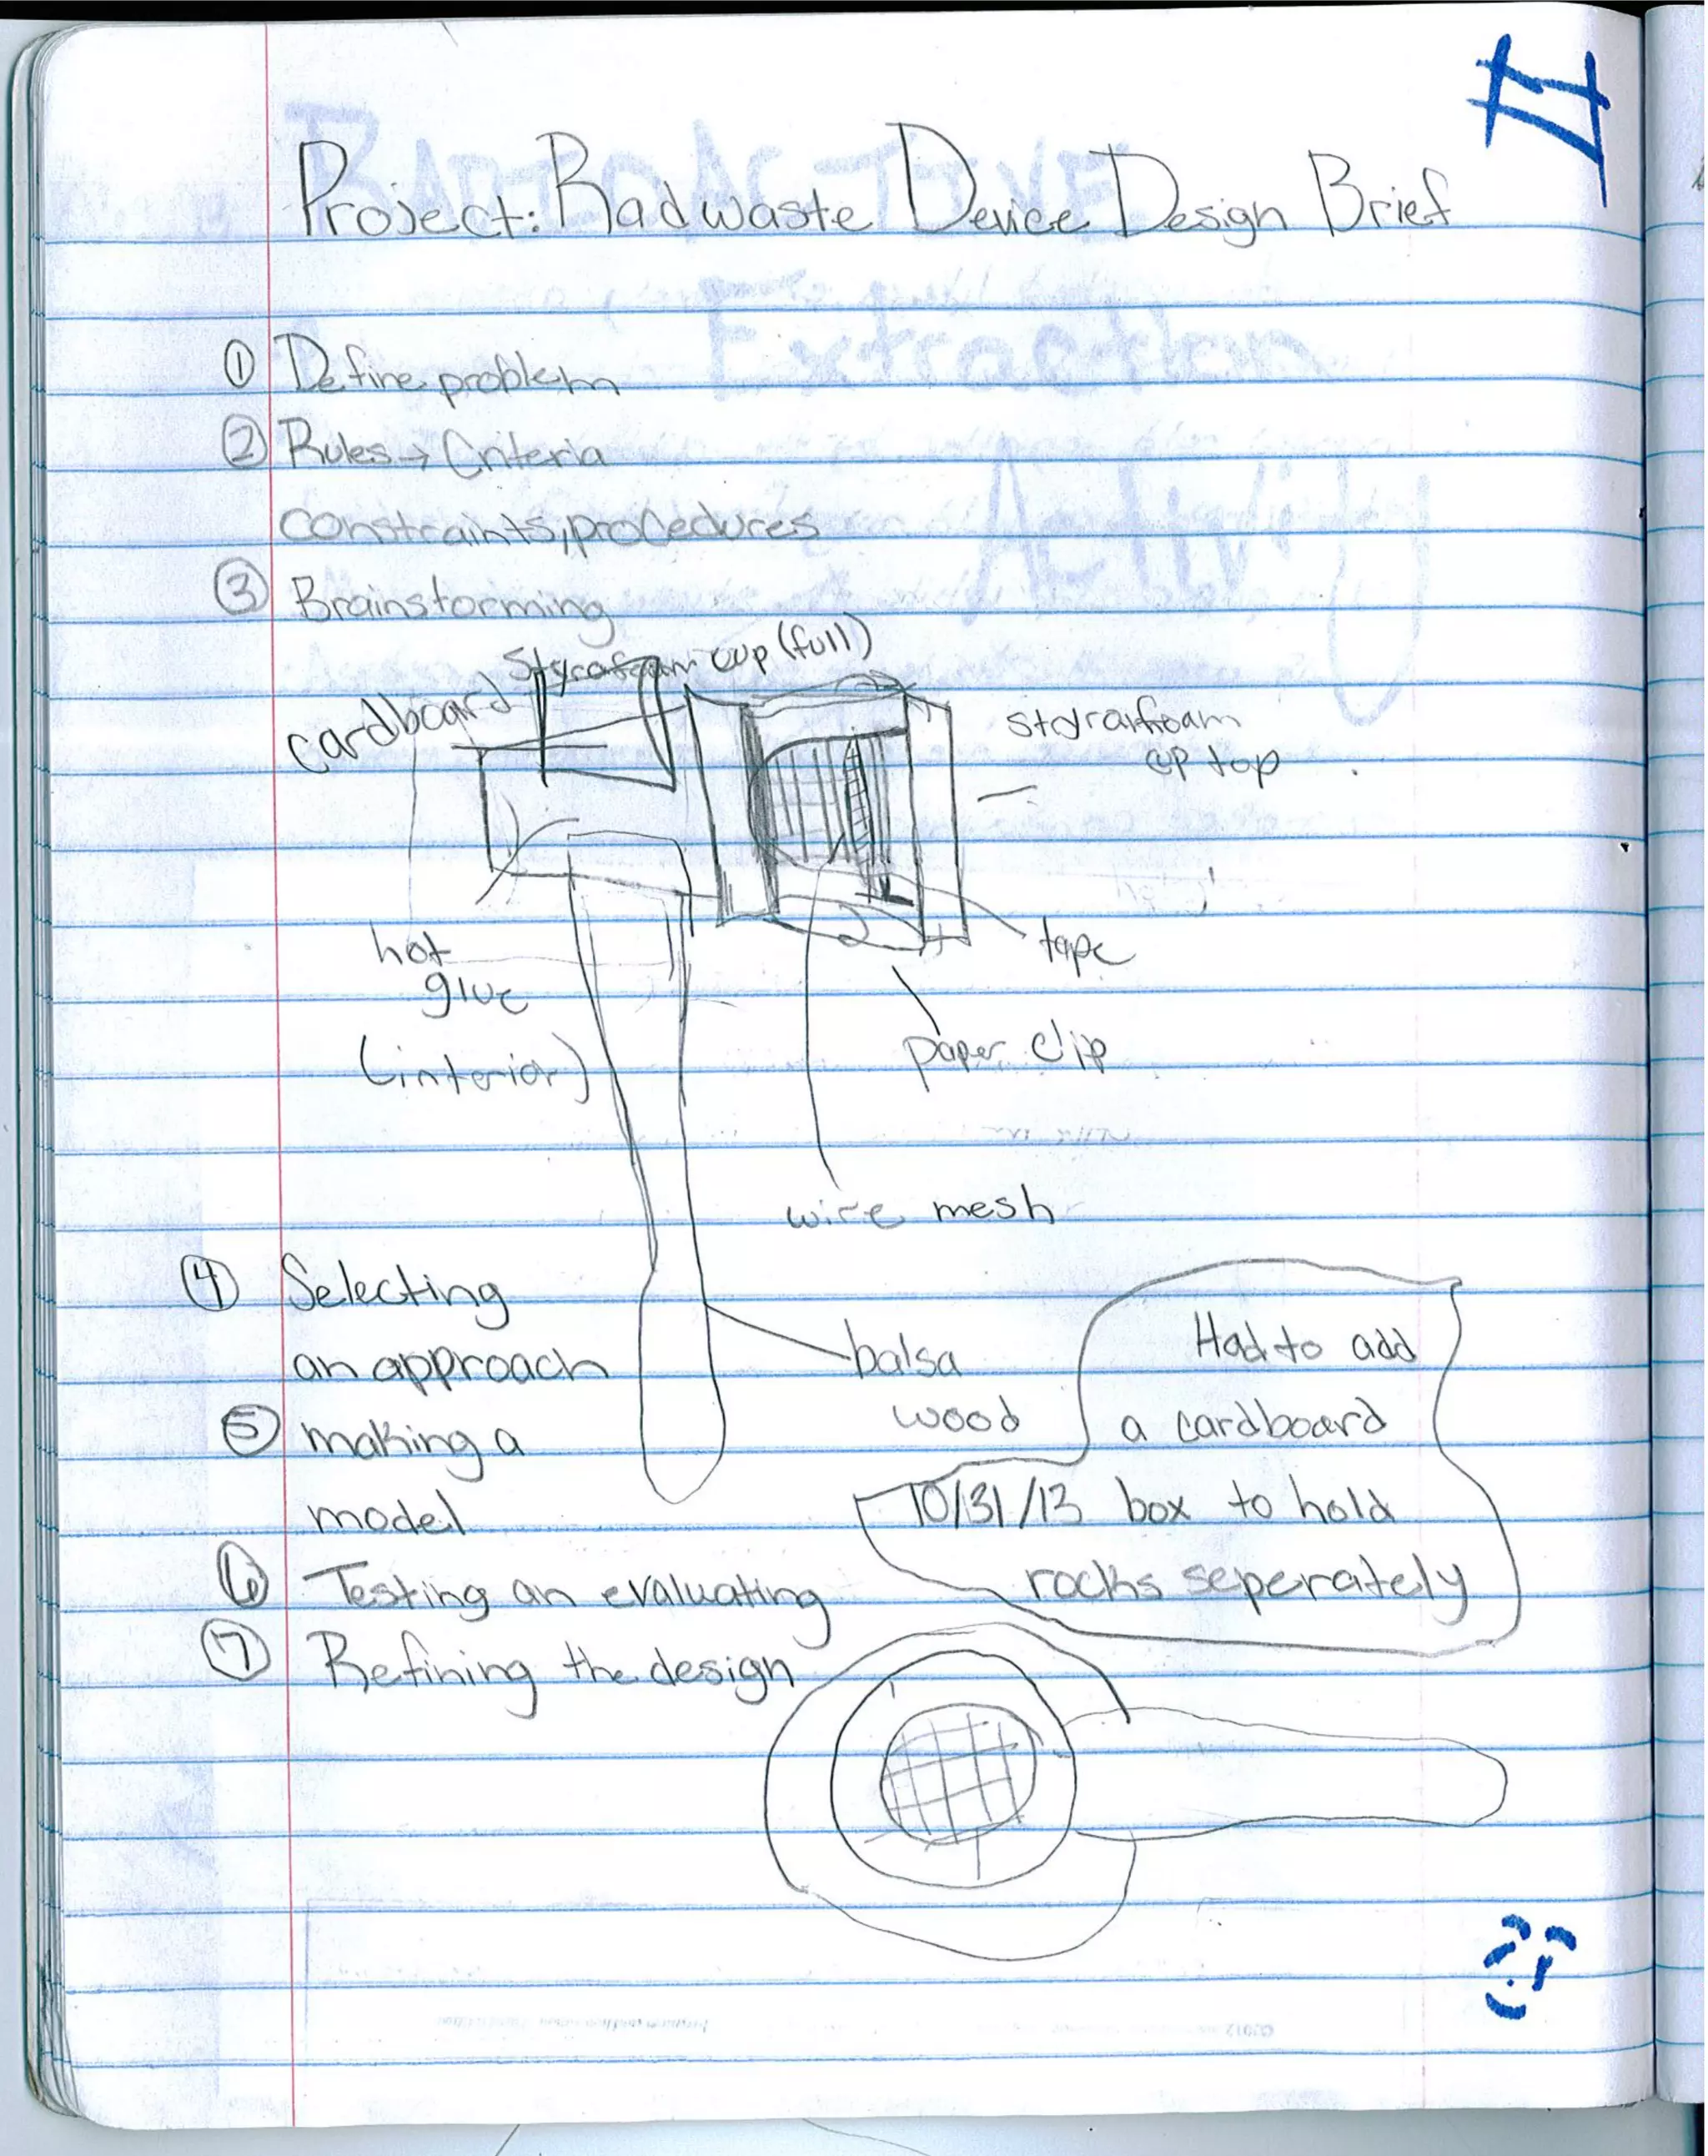 Project: Radwaste Device Design Brief
① Define problem
② Rules → Criteria
constraints, procedures
③ Brainstorming
Styrofoam cup (full)
cardboard
styrafoam
cup top
hot
glue
(interior)
tape
paper clip
wire mesh
④ Selecting
an approach
⑤ making a
model
⑥ Testing an evaluating
⑦ Refining the design
balsa
wood
Had to add
a cardboard
10/31/13 box to hold
rocks seperately